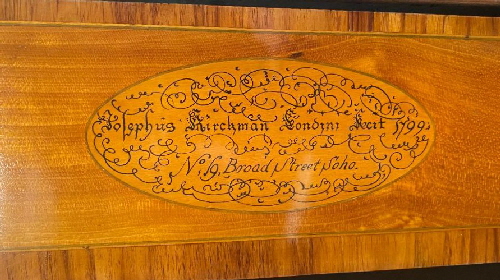 Josephus Kirckman Londini Fecit 1799
No. 19, Broad Street Soho.